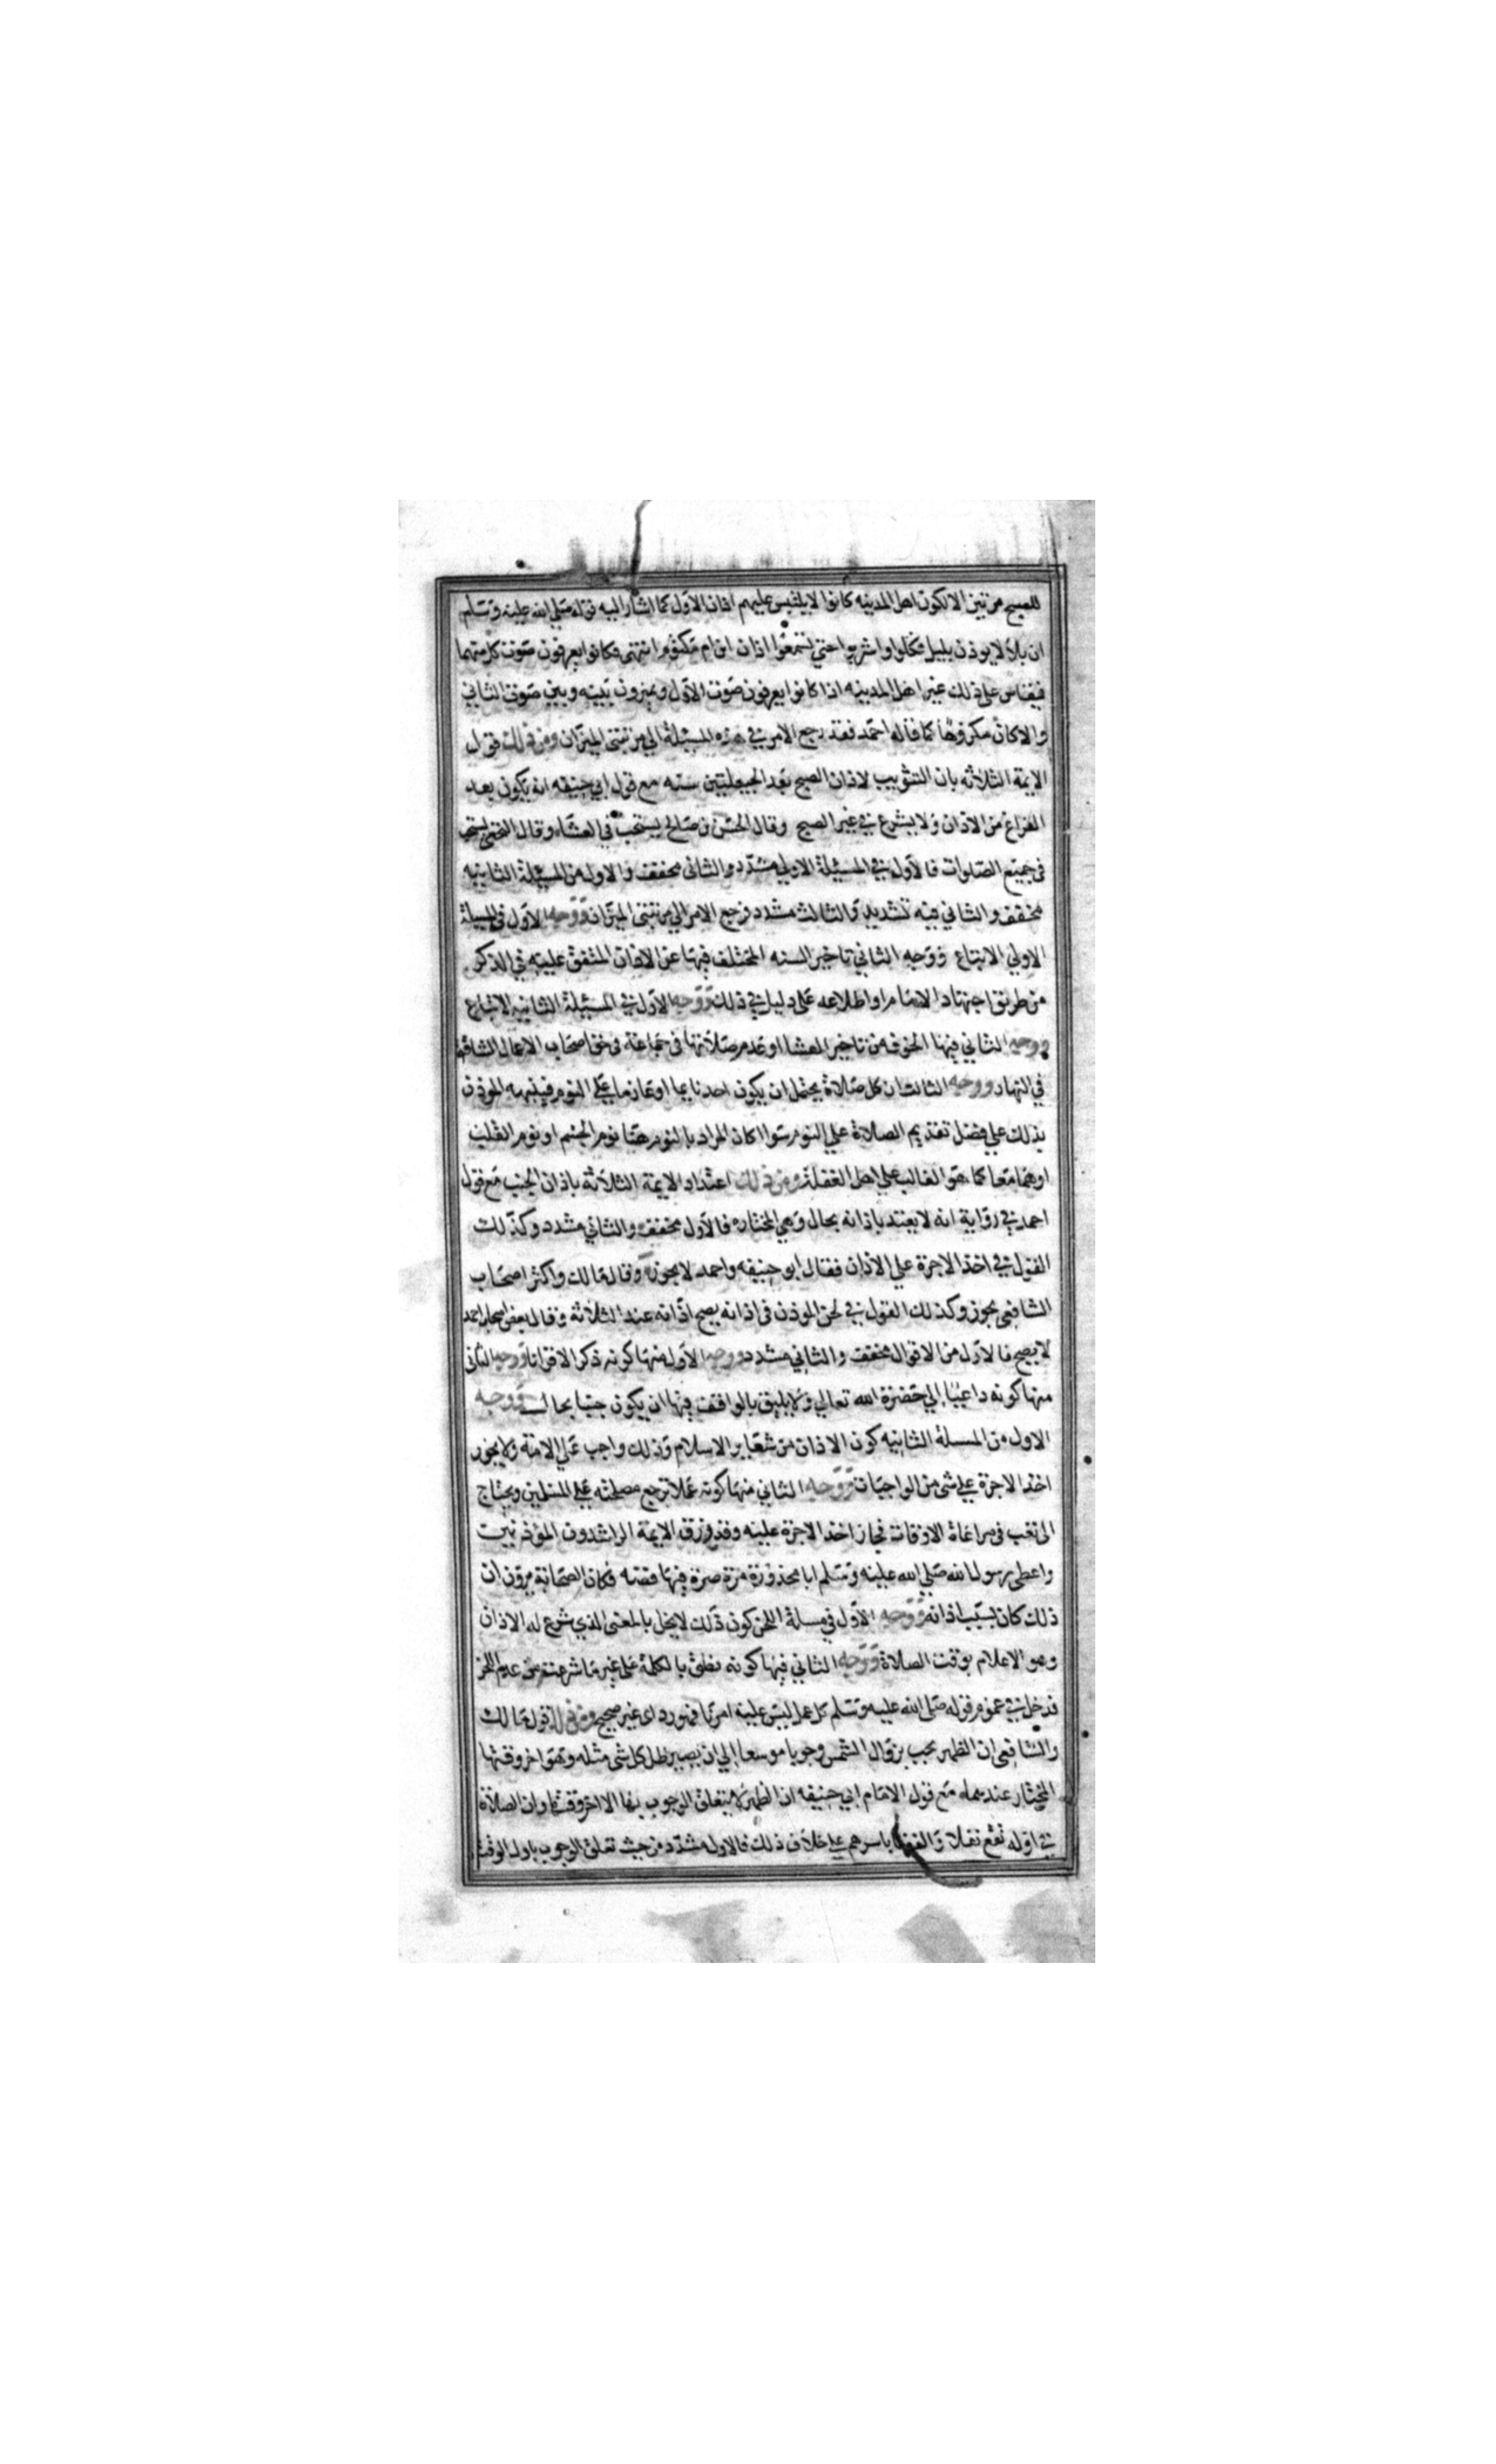 للصبح مرتين الا لكون اهل المدينه كانوا لا يلتبس عليهم اذان الاول كما اشار اليه قوله صلي الله عليه وسلم
ان بلالا يوذن بليل فكلوا واشربوا حتي تسمعوا اذان ابن ام مكتوم انتهى فكانوا يعرفون صوت كل منهما
فيقاس على ذلك غير اهل المدينه اذا كانوا يعرفون صوت الاول ويميزون بينه وبين صوت الثاني
والا كان مكروها كما قاله احمد فقد رجع الامر في هذه المسئلة الي مرتبتي الميزان ومن ذلك قول
الايمة الثلاثه بان التثويب لاذان الصبح بعد الحيعلتين سنه مع قول ابي حنيفه انه يكون بعد
الفراغ من الاذان ولا يشرع في غير الصبح وقال الحسن بن صالح يستحب في العشاء وقال النخعي يستحب
في جميع الصلوات فالاول في المسئلة الاولي مشدد والثاني مخفف والاول من المسئلة الثانيه
مخفف والثاني فيه تشديد والثالث مشدد فرجع الامر الي مرتبتي الميزان ووجه الاول في المسيلة
الاولي الاتباع ووجه الثاني تاخير السنه المختلف فيها عن الاذان المتفق عليه في الذكر
من طريق اجتهاد الامام او اطلاعه على دليل في ذلك ووجه الاول في المسئلة الثانيه الاتباع
ووجه الثاني فيها الخوف من تاخير العشا او عدم صلاتها في جماعة في حق اصحاب الاعمال الشاقه
في النهار ووجه الثالث ان كل صلاة يحتمل ان يكون احد نايما او عازما على النوم فينبهه الموذن
بذلك علي فضل تقديم الصلاة علي النوم سوا كان المراد بالنوم هنا نوم الجسم او نوم القلب
او هما معا كما هو الغالب علي اهل الغفلة ومن ذلك اعتداد الايمة الثلاثة باذان الجنب مع قول
احمد في رواية انه لا يعتد باذانه بحال وهي المختاره فالاول مخفف والثاني مشدد وكذلك
القول في اخذ الاجرة علي الاذان فقال ابو حنيفه واحمد لا يجوز وقال مالك واكثر اصحاب
الشافعي يجوز وكذلك القول في لحن الموذن في اذانه يصح اذانه عند الثلاثة وقال بعض اصحاب احمد
لا يصح فالاول من الاقوال مخفف والثاني مشدد ووجه الاول منها كونه ذكرا لا قرانا ووجه الثاني
منها كونه داعيا الي حضرة الله تعالي ولا يليق بالواقف فيها ان يكون جنبا بحال ووجه
الاول من المسلة الثانيه كون الاذان من شعاير الاسلام وذلك واجب علي الامة ولا يجوز
اخذ الاجرة علي شي من الواجبات ووجه الثاني منها كونه عملا ترجع مصلحته علي المسلمين ويحتاج
الى تعب في مراعاة الاوقات فجاز اخذ الاجرة عليه وقد رزق الايمة الراشدون المؤذنين
واعطى رسول الله صلي الله عليه وسلم ابا محذورة مرة صرة فيها فضه فكان الصحابة يرون ان
ذلك كان بسبب اذانه ووجه الاول في مسلة اللحن كون ذلك لا يخل بالمعنى الذي شرع له الاذان
وهو الاعلام بوقت الصلاة ووجه الثاني فيها كونه نطق بالكلمة على غير ما شرعت من عدم اللحن
فدخل في عموم قوله صلى الله عليه وسلم كل عمل ليس عليه امرنا فهو رد اي غير صحيح ومن ذلك قول مالك
والشافعي ان الظهر يجب بزوال الشمس وجوبا موسعا الي ان يصير ظل كل شي مثله وهو اخر وقتها
المختار عندهما مع قول الامام ابي حنيفه ان الظهر لا يتعلق الوجوب بها الا اخر وقتها وان الصلاة
في اوله تقع نفلا والفقها باسرهم على خلاف ذلك فالاول مشدد من حيث تعلق الوجوب باول الوقت